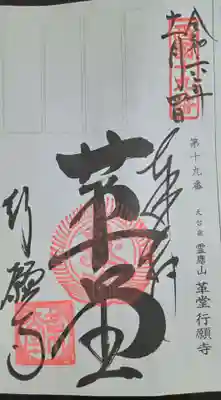 令和六年
第十九番 天台宗 霊麀山 革堂 行願寺
奉拝
革堂
行願寺